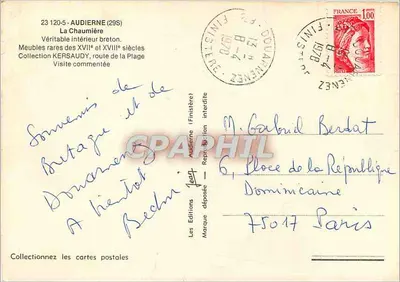 23 120-5 - AUDIERNE (29S)
La Chaumière
Véritable intérieur breton.
Meubles rares des XVIIe et XVIIIe siècles
Collection KERSAUDY, route de la Plage
Visite commentée
DOUARNENEZ
8-4
1978
FINISTERE
FRANCE
1,00
DOUARNENEZ
8-4
1978
FINISTERE
Souvenirs de
Bretagne et de
Douarnenez
A bientôt
CPAPHIL
Les Editions Jean Audierne (Finistère)
Marque déposée - Reproduction interdite
M. Gabriel Berdat
6, Place de la République
Dominicaine
75017 Paris
Collectionnez les cartes postales